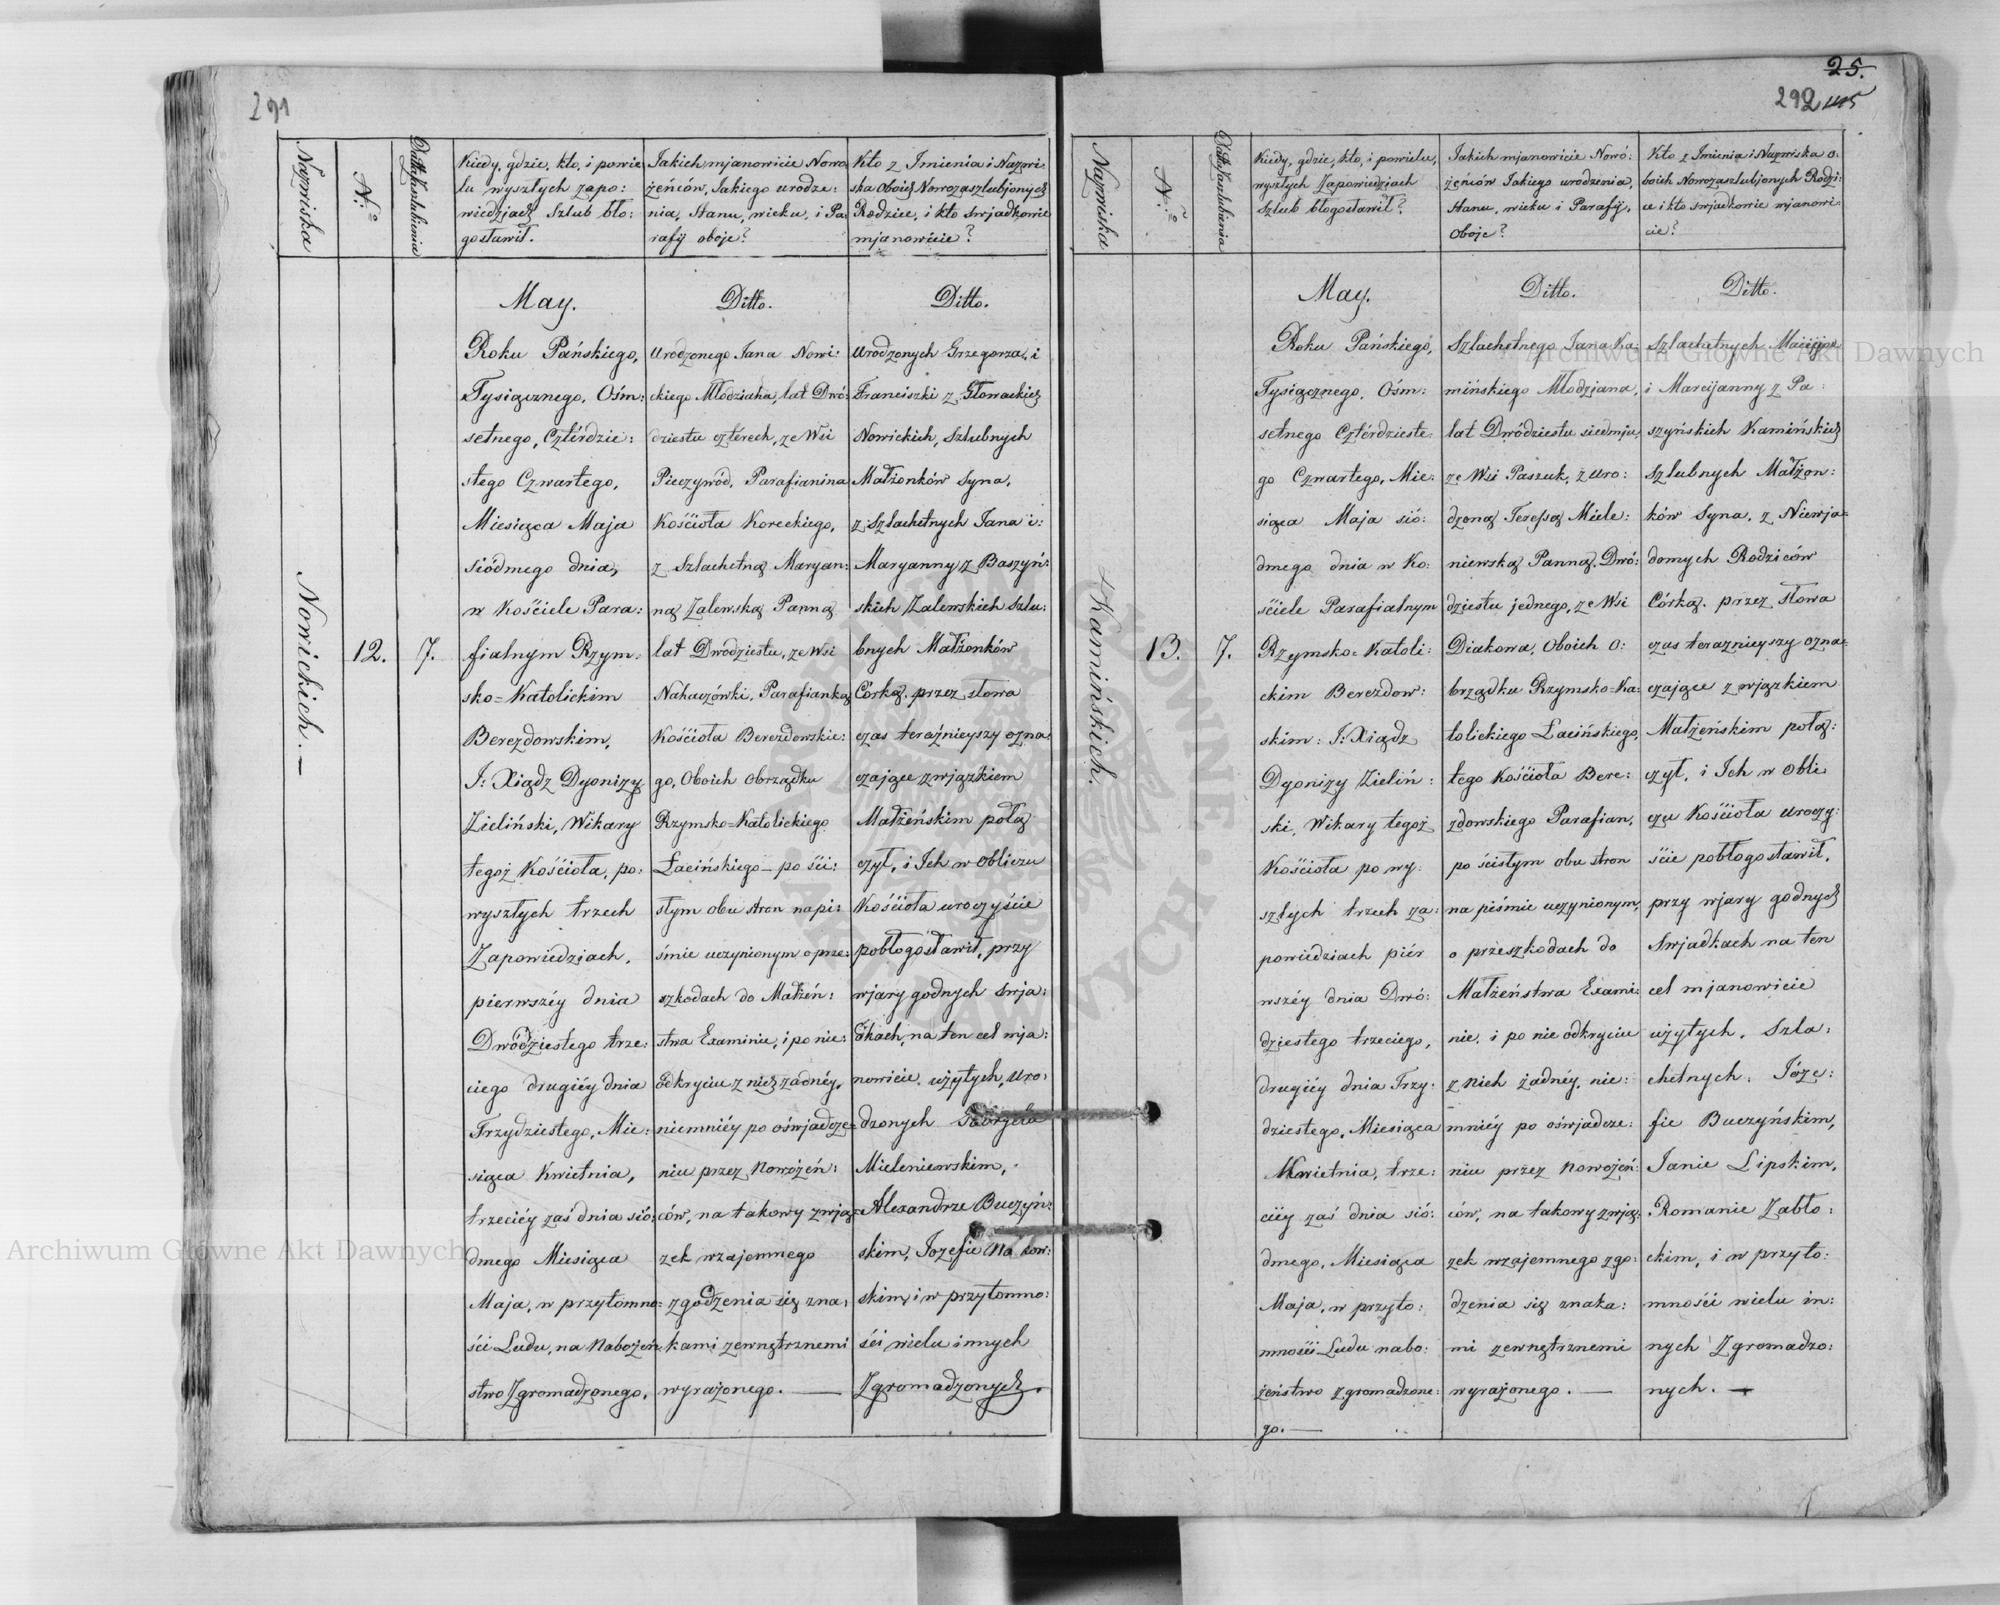 291
Nazwiska
N:o
Data Zaslubienia
Kiedy, gdzie, kto, i powie
lu wyszłych zapo:
wiedziach Szlub bło:
gosławił.
Jakich mjanowicie Nowo
żeńców, Jakiego urodze:
nia, Stanu, wieku, i Pa
rafij oboje?
Kto z Imienia i Nazwi:
ska Oboich Nowozaszlubjonych
Rodzice, i kto swjadkowie
mjanowicie?
Nowickich. —
12.
7.
May.
Roku Pańskiego,
Tysiącznego, Ośm:
setnego, Cztérdzie:
stego Czwartego,
Miesiąca Maja
siódmego dnia,
w Kościele Para:
fialnym Rzym:
sko=Katolickim
Berezdowskim,
J: Xiądz Dyonizy
Zieliński, Wikary
tegoż Kościoła, po:
wyszłych trzech
Zapowiedziach,
pierwszéy dnia
Dwódziestego trze:
ciego drugiéy dnia
Trzydziestego, Mie:
siąca Kwietnia,
trzeciéy zaś dnia sió:
dmego Miesiąca
Maja, w przytomno:
ści Ludu, na Nabożeń:
stwo Zgromadzonego,
Ditto.
Urodzonego Jana Nowi:
ckiego Młodziana, lat Dwó:
dziestu cztérech, ze Wsi
Pieczywód, Parafianina
Kościoła Koreckiego,
z Szlachetną Maryan:
ną Zalewską Panną
lat Dwódziestu, ze Wsi
Nahaczówki, Parafianką
Kościoła Berezdowskie:
go, Oboich Obrządku
Rzymsko=Katolickiego
Łacińskiego — po ści:
słym obu stron napi:
śmie uczynionym o prze:
szkodach do Małżeń:
stwa Examinie, i po nie:
odkryciu z nich żadnéy,
niemniéy po oświadcze:
niu przez Nowożeń:
ców, na takowy zwią:
zek wzajemnego
zgodzenia się zna:
kami zewnętrznemi
wyrażonego. —
Ditto.
Urodzonych Grzegorza, i
Franciszki z Głowackich
Nowickich, Szlubnych
Małżonków Syna,
z Szlachetnych Jana i:
Maryanny z Baszyń:
skich Zalewskich Szlu:
bnych Małżonków
Córką, przez słowa
czas teraźnieyszy ozna
czające związkiem
Małżeńskim połą
czył, i Ich w Obliczu
Kościoła uroczyście
pobłogosławił, przy
wjary godnych Swja:
dkach, na ten cel mja:
nowicie użytych, Uro:
dzonych Gabryelu
Mieleniewskim,
Alexandrze Buczyń:
skim, Jozefie
skim, i w przytomno:
ści wielu innych
Zgromadzonych.
25.
292
Nazwiska
N:o
Data Zaslubienia
Kiedy, gdzie, kto, i powielu,
wyszłych Zapowiedziach
Szlub błogosławił?
Jakich mjanowicie Nowó:
żeńców Jakiego urodzenia,
Stanu, wieku i Parafij,
Oboje?
Kto z Imienia i Nazwiska o:
boich Nowozaszlubjonych Rodzi:
ce i kto swjadkowie mjanowi:
cie?
Kamińskich.
13.
7.
May.
Roku Pańskiego,
Tysiącznego, Ośm:
setnego Cztérdzieste:
go Czwartego, Mie:
siąca Maja sió:
dmego dnia w Ko:
ściele Parafialnym
Rzymsko=Katoli:
ckim Berezdow:
skim: J: Xiądz
Dyonizy Zieliń:
ski, Wikary tegoż
Kościoła po wy:
szłych trzech za:
powiedziach piér
wszéy dnia Dwó:
dziestego trzeciego,
drugiéy dnia Trzy:
dziestego, Miesiąca
Kwietnia, trze:
ciéy zaś dnia sió:
dmego, Miesiąca
Maja, w przyto:
mności Ludu nabo:
żeństwo zgromadzone:
go. —
Ditto.
Szlachetnego Jana Ka:
mińskiego Młodziana,
lat Dwódziestu siedmiu,
ze Wsi Paszuk, z Uro:
dzoną Teressą Miele:
niewską Panną, Dwó:
dziestu jednego, ze Wsi
Diakowa, Oboich O:
brządku Rzymsko=Ka:
tolickiego Łacińskiego,
tego Kościoła Bere:
zdowskiego Parafian,
po ścisłym obu stron
na piśmie uczynionym,
o przeszkodach do
Małżeństwa Exami:
nie, i po nie odkryciu
z Nich żadnéy, nie:
mniéy po oświadcze:
niu przez Nowożeń:
ców, na takowy zwią:
zek wzajemnego zgo:
dzenia się znaka:
mi zewnętrznemi
wyrażonego. —
Ditto.
Szlachetnych Macieja
i Marcijanny z Pa:
szyńskich Kamińskich
Szlubnych Małżon:
ków Syna, z Niewja=
domych Rodziców
Córką, przez słowa
czas teraznieyszy ozna=
czające związkiem
Małżeńskim połą:
czył, i Ich w Obli
czu Kościoła uroczy:
ście pobłogosławił,
przy wjary godnych
Swjadkach na ten
cel mjanowicie
użytych, Szla:
chetnych, Józe:
fie Buczyńskim,
Janie Lipskim,
Romanie Zabło:
ckim, i w przyto:
mności wielu in:
nych Zgromadzo:
nych. —
Archiwum Główne Akt Dawnych
Archiwum Główne Akt Dawnych